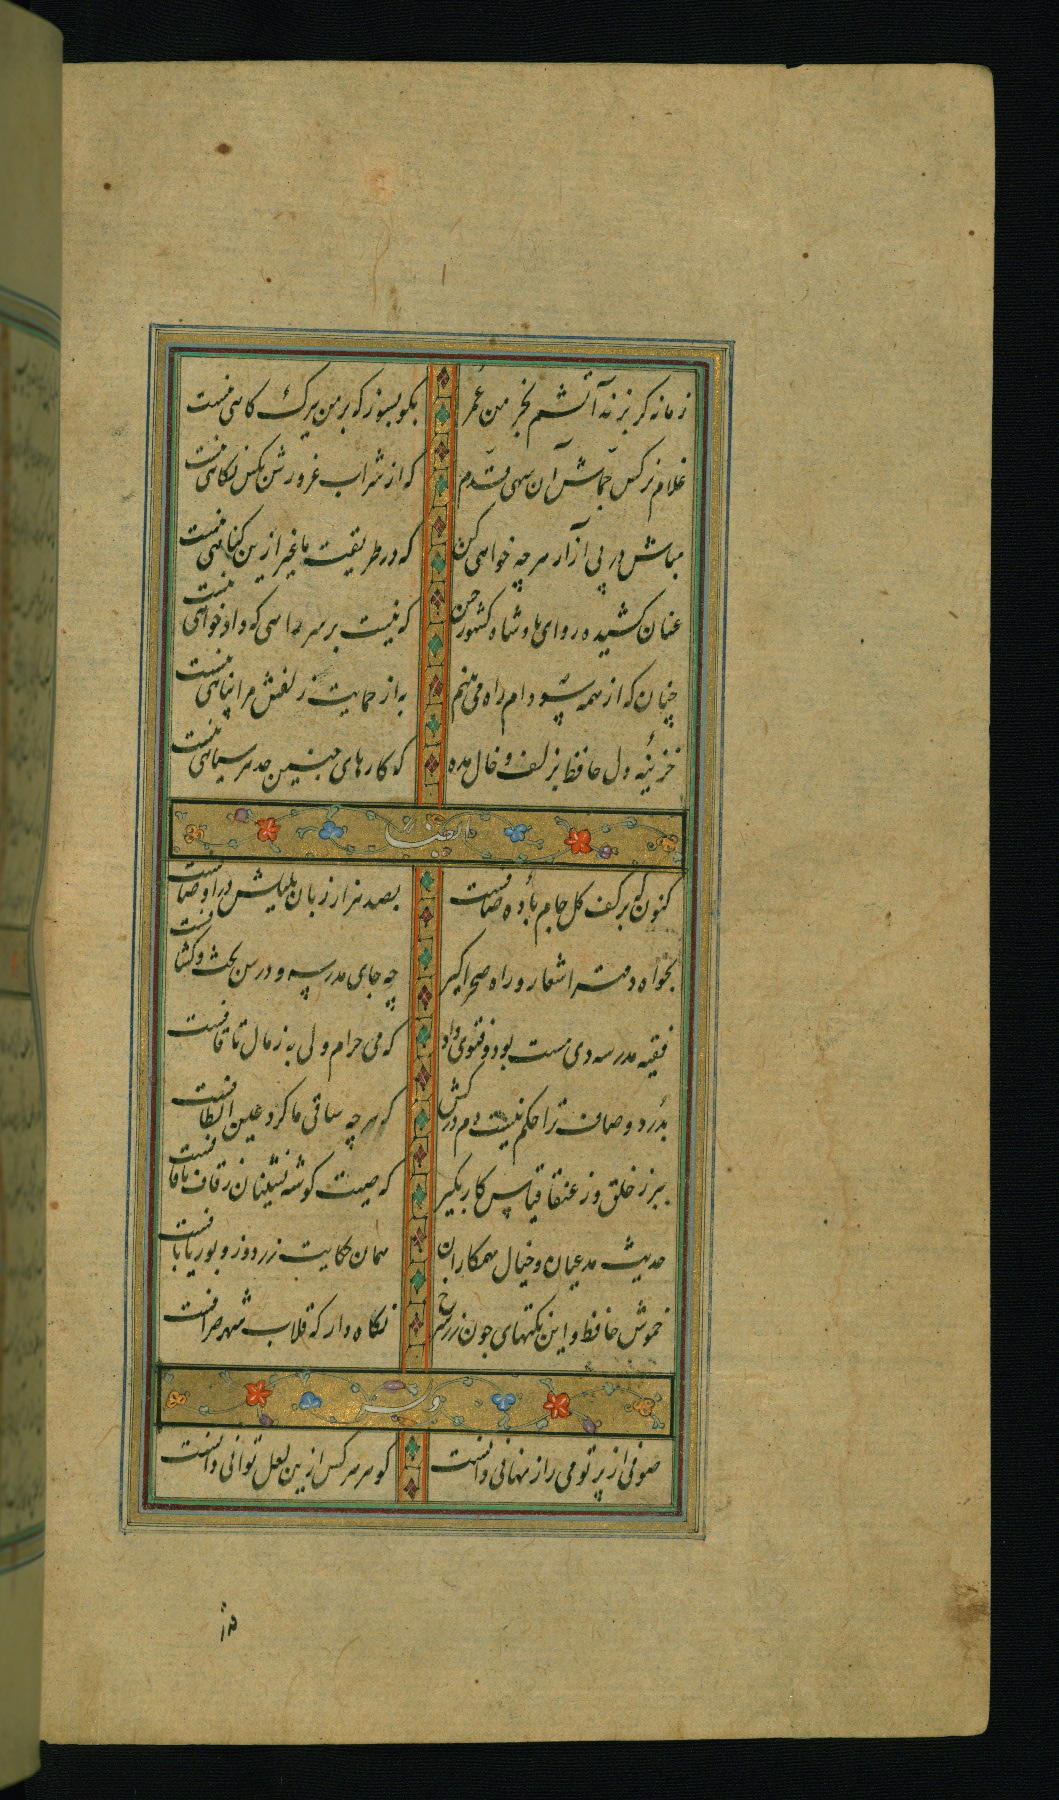 زمانه کر بزند آتشم بخرمن عمر بکو بسوز که بر من ببرک کاهی نیست
غلام نرکس جماش آن سهی قدم که از شراب غرورش بکس نکاهی نیست
مباش در پی آزار هر چه خواهی کن که در طریقت ما غیر ازین کناهی نیست
عنان کشیده رو ای پادشاه کشور حسن که نیست بر سر راهی که دادخواهی نیست
چنان که از همه سو دام راه می بینم به از حمایت زلفش مرا پناهی نیست
خزینهٔ دل حافظ بزلف و خال مده که کارهای چنین حد هر سیاهی نیست
کنون که بر کف کل جام بادهٔ صافست بصد هزار زبان بلبلش در اوصافست
بخواه دفتر اشعار و راه صحرا کیر چه جای مدرسه و درس بحث و کشافست
فقیه مدرسه دی مست بود و فتوی داد که می حرام ولی به ز مال اوقافست
بدرد و صاف ترا حکم نیست دم درکش که هر چه ساقی ما کرد عین الطافست
ببر ز خلق و ز عنقا قیاس کار بکیر که صیت کوشه نشینان ز قاف تا قافست
حدیث مدعیان و خیال همکاران همان حکایت زردوز و بوریا بافست
خموش حافظ و این نکتهای چون زر سرخ نکاه دار که قلاب شهر صرافست
صوفی از پرتو می راز نهانی دانست کوهر هر کس ازین لعل توانی دانست